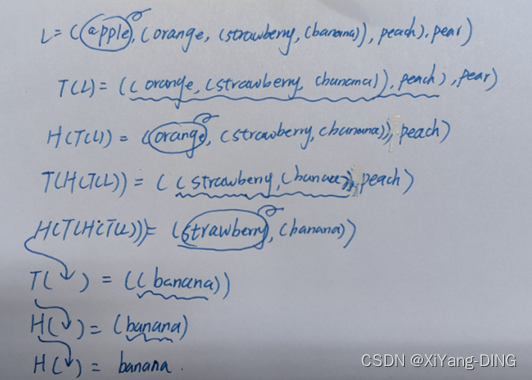 L = (apple, (orange, (strawberry, (banana)), peach), pear)
T(L) = ((orange, (strawberry, (banana)), peach), pear)
H(T(L)) = (orange, (strawberry, (banana)), peach)
T(H(T(L))) = ((strawberry, (banana)), peach)
H(T(H(T(L)))) = (strawberry, (banana))
T( ) = ((banana))
H( ) = (banana)
H( ) = banana.
CSDN @XiYang-DING